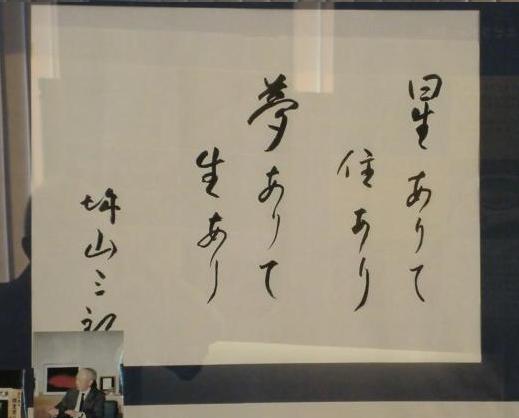 星ありて
住あり
夢ありて
生あり
山三